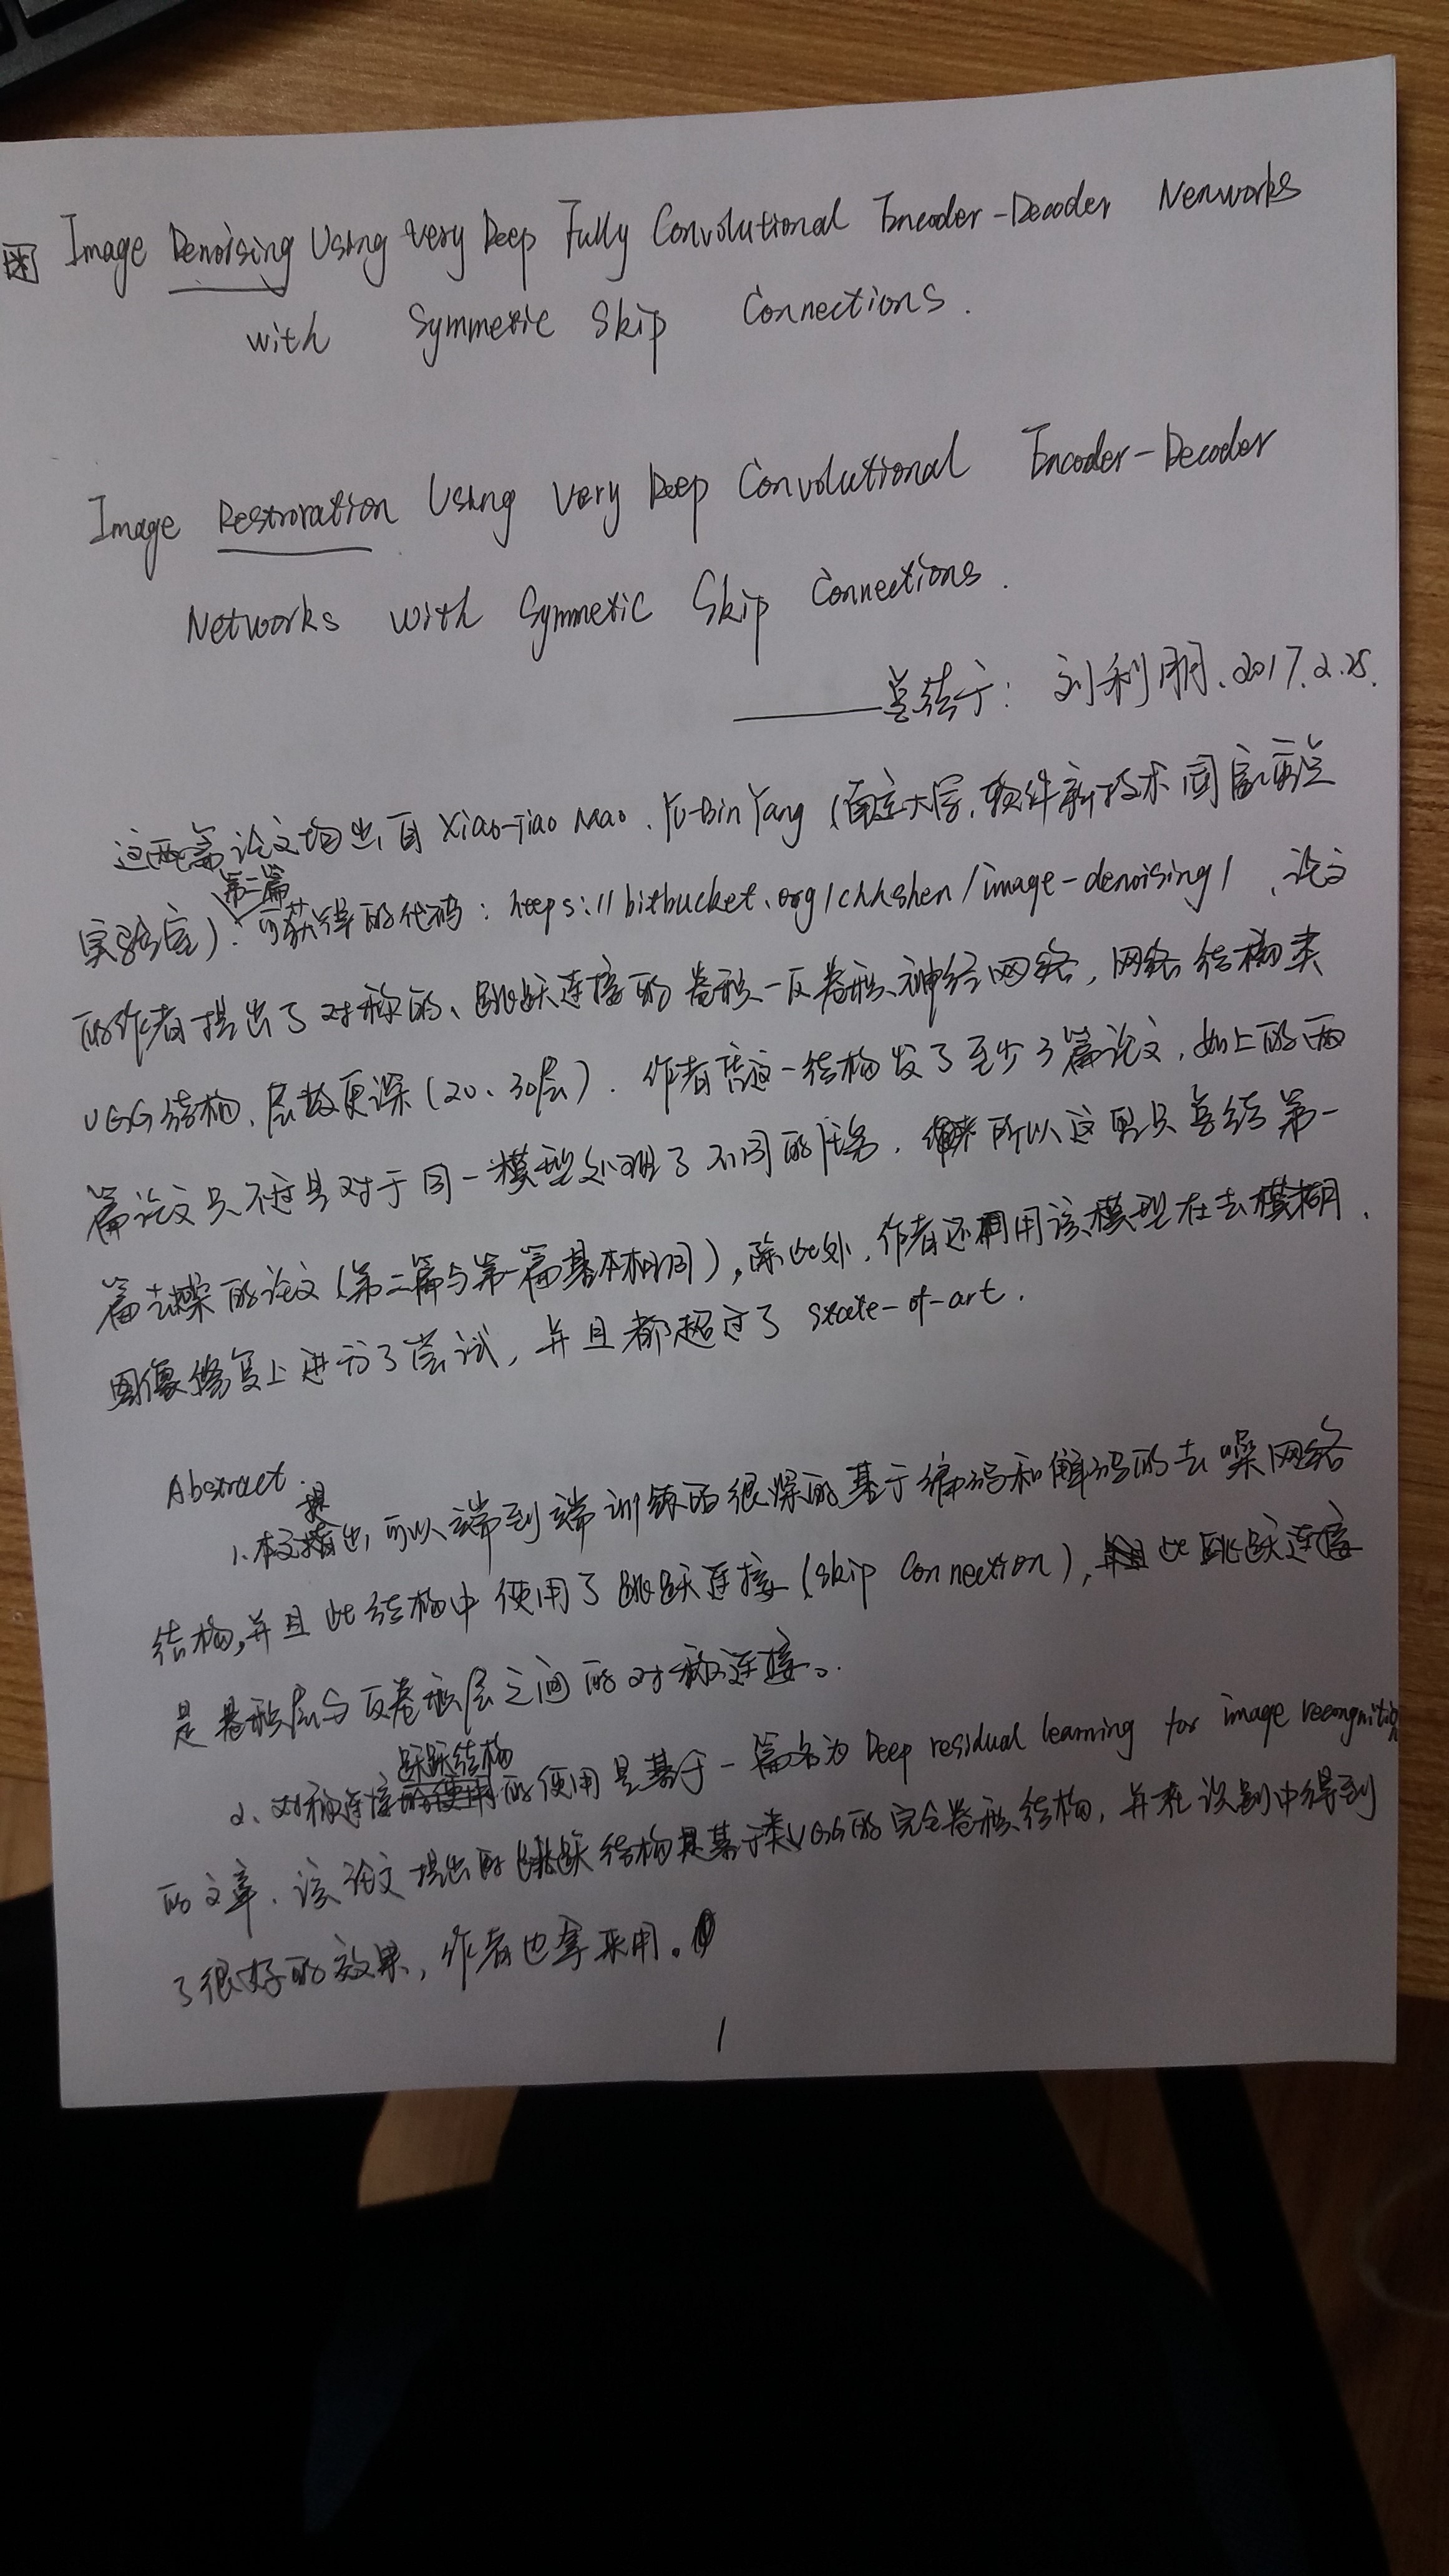 Image Denoising Using Very Deep Fully Convolutional Encoder-Decoder Nenworks
with Symmetic Skip Connections.
Image Restroration Using Very Deep Convolutional Encoder-Decoder
Networks with Symmetic Skip Connections.
——总结于: 刘利朋、2017.2.25.
这两篇论文均出自Xiao-Jiao Mao、Yu-Bin Yang (南京大学,软件新技术国家重点
第二篇
实验室). 可获得的代码: https://bitbucket.org/chhshen/image-denoising/ 、论文
的作者提出了对称的、跳跃连接的卷积-反卷积神经网络, 网络结构类
VGG结构, 层数更深(20、30层). 作者凭这一结构发了至少3篇论文, 如上的两
篇论文只不过是对于同一模型处理了不同的任务, 所以这里只总结第一
篇去燥的论文(第二篇与第一篇基本相同), 除此外, 作者还利用该模型在去模糊、
图像修复上进行了尝试, 并且都超过了 state-of-art.
Abstract.
提
1、本文出, 可以端到端训练的很深的基于编码和解码的去噪网络
结构, 并且此结构中使用了跳跃连接(skip connection), 此跳跃连接
是卷积层与反卷积层之间的对称连接。
跳跃结构
2、对称连接的使用是基于一篇名为Deep residual learning for image recongnition
的文章、该论文提出的跳跃结构是基于类VGG的完全卷积结构, 并在识别中得到
了很好的效果, 作者也拿来用。
1